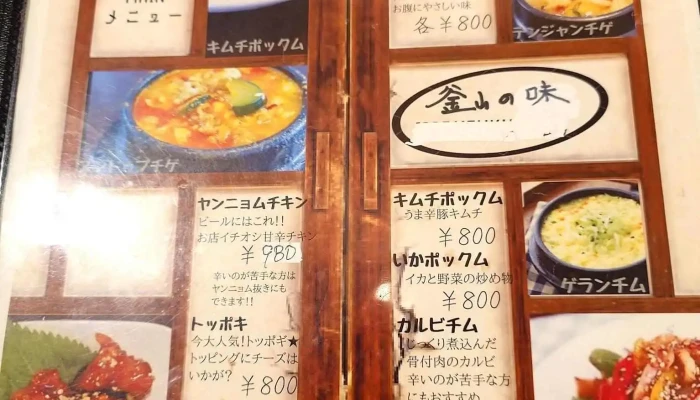 メニュー
キムチポックム
プチゲ
ヤンニョムチキン
ビールにはこれ!!
お店イチオシ甘辛チキン
￥980
辛いのが苦手な方は
ヤンニョム抜きにも
できます!!
トッポキ
今大人気!トッポギ★
トッピングにチーズは
いかが?
￥800
お腹にやさしい味
各￥800
テンジャンチゲ
釜山の味
キムチポックム
うま辛豚キムチ
￥800
いかポックム
イカと野菜の炒め物
￥800
ゲランチム
カルビチム
じっくり煮込んだ
骨付肉のカルビ
辛いのが苦手な方
にもおすすめ